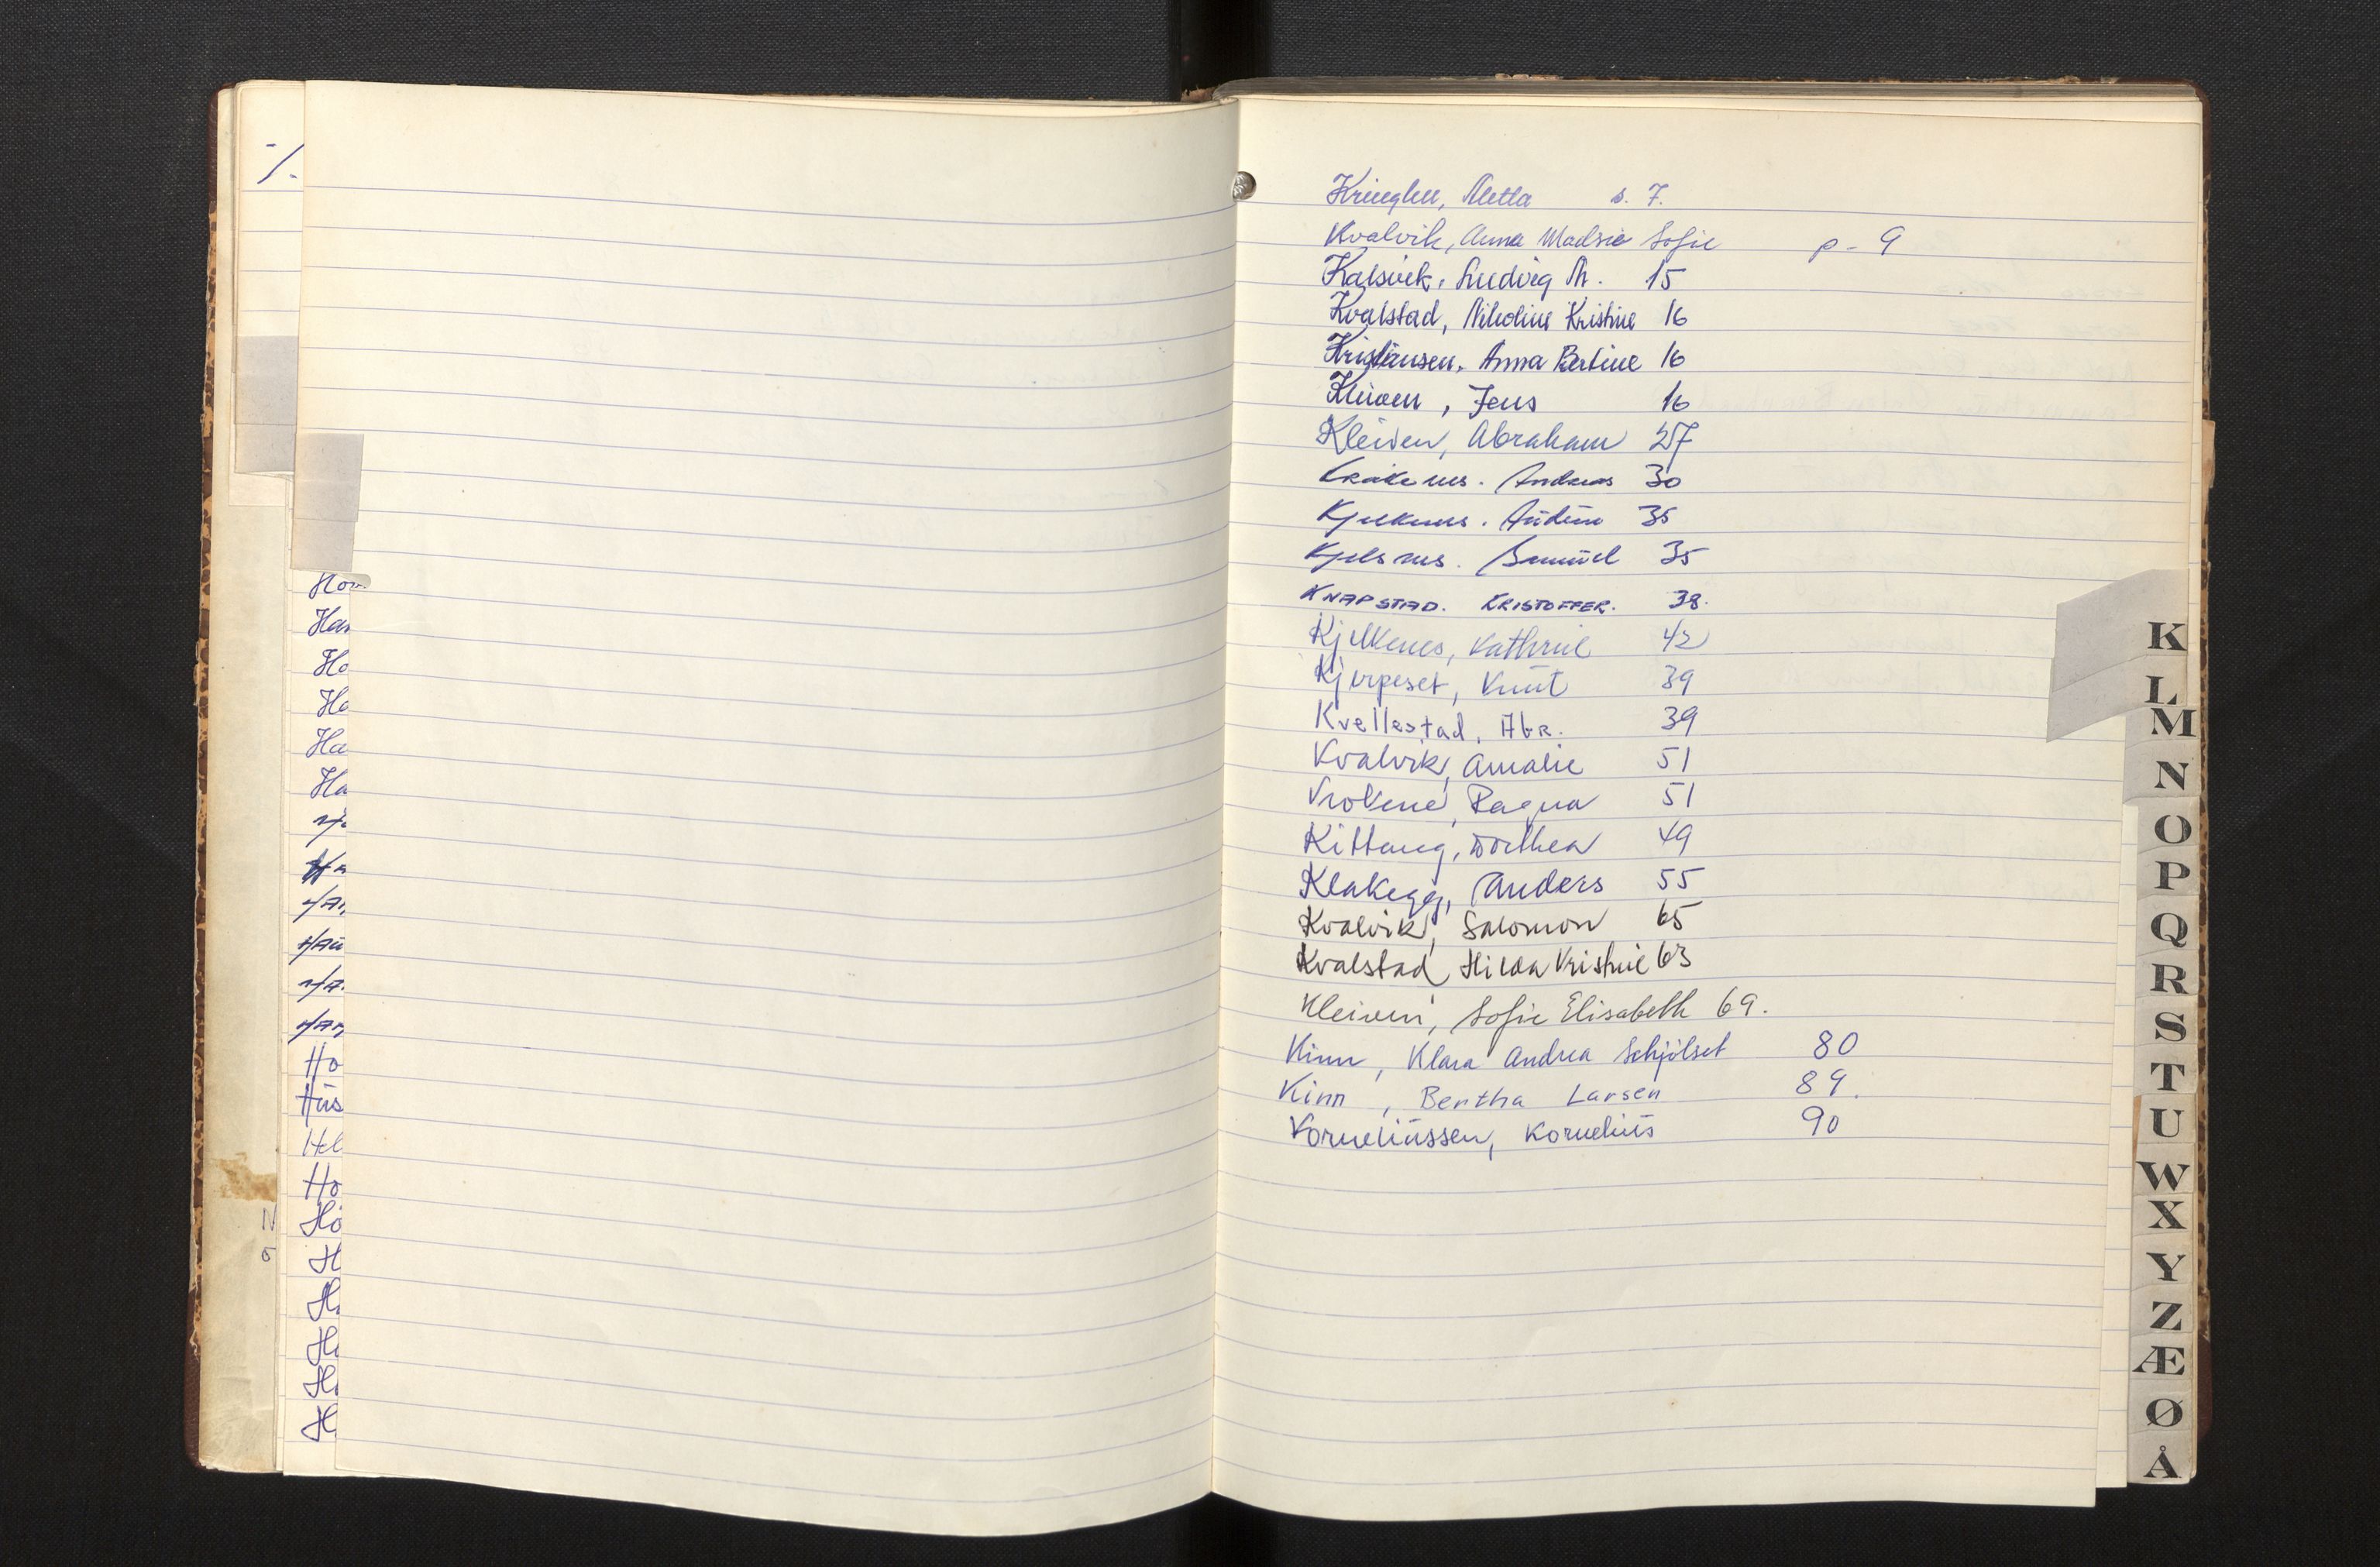 -/.
Hov
Han
Ho
Ho
Ha
Ha
HAU
Ho
Hus
Hel
Ho
Hø
H
H
H
H
H
N
Kringlen, Metta s. 7.
Kvalvik, Anna Madsie Sofie p - 9
Kalsvik, Ludvig M. 15
Kvalstad, Nikoline Kristine 16
Kristiansen, Anna Bertine 16
Kleiven, Jens 16
Kleiven, Abraham 27
Kråkenes. Andreas 30
Kjelkenes. 35
Kjelsnes. Samuel 35
KNAPSTAD. KRISTOFFER. 38.
Kjelkenes, Kathrine 42
Kjerpeset, Knut 39
Kvellestad, Abr. 39
Kvalvik, Amalie 51
Krokene, Ragna 51
Kittang, Dorthea 49
Klakegg, Anders 55
Kvalvik, Salomon 65
Kvalstad, Hilda Kristine 63
Kleiven, Sofie Elisabeth 69.
Kinn, Klara Andrea Schjølset 80
Kinn, Bertha Larsen 89.
Korneliussen, Kornelius 90
K
L
M
N
O
P
Q
R
S
T
U
W
X
Y
Z
Æ
Ø
Å